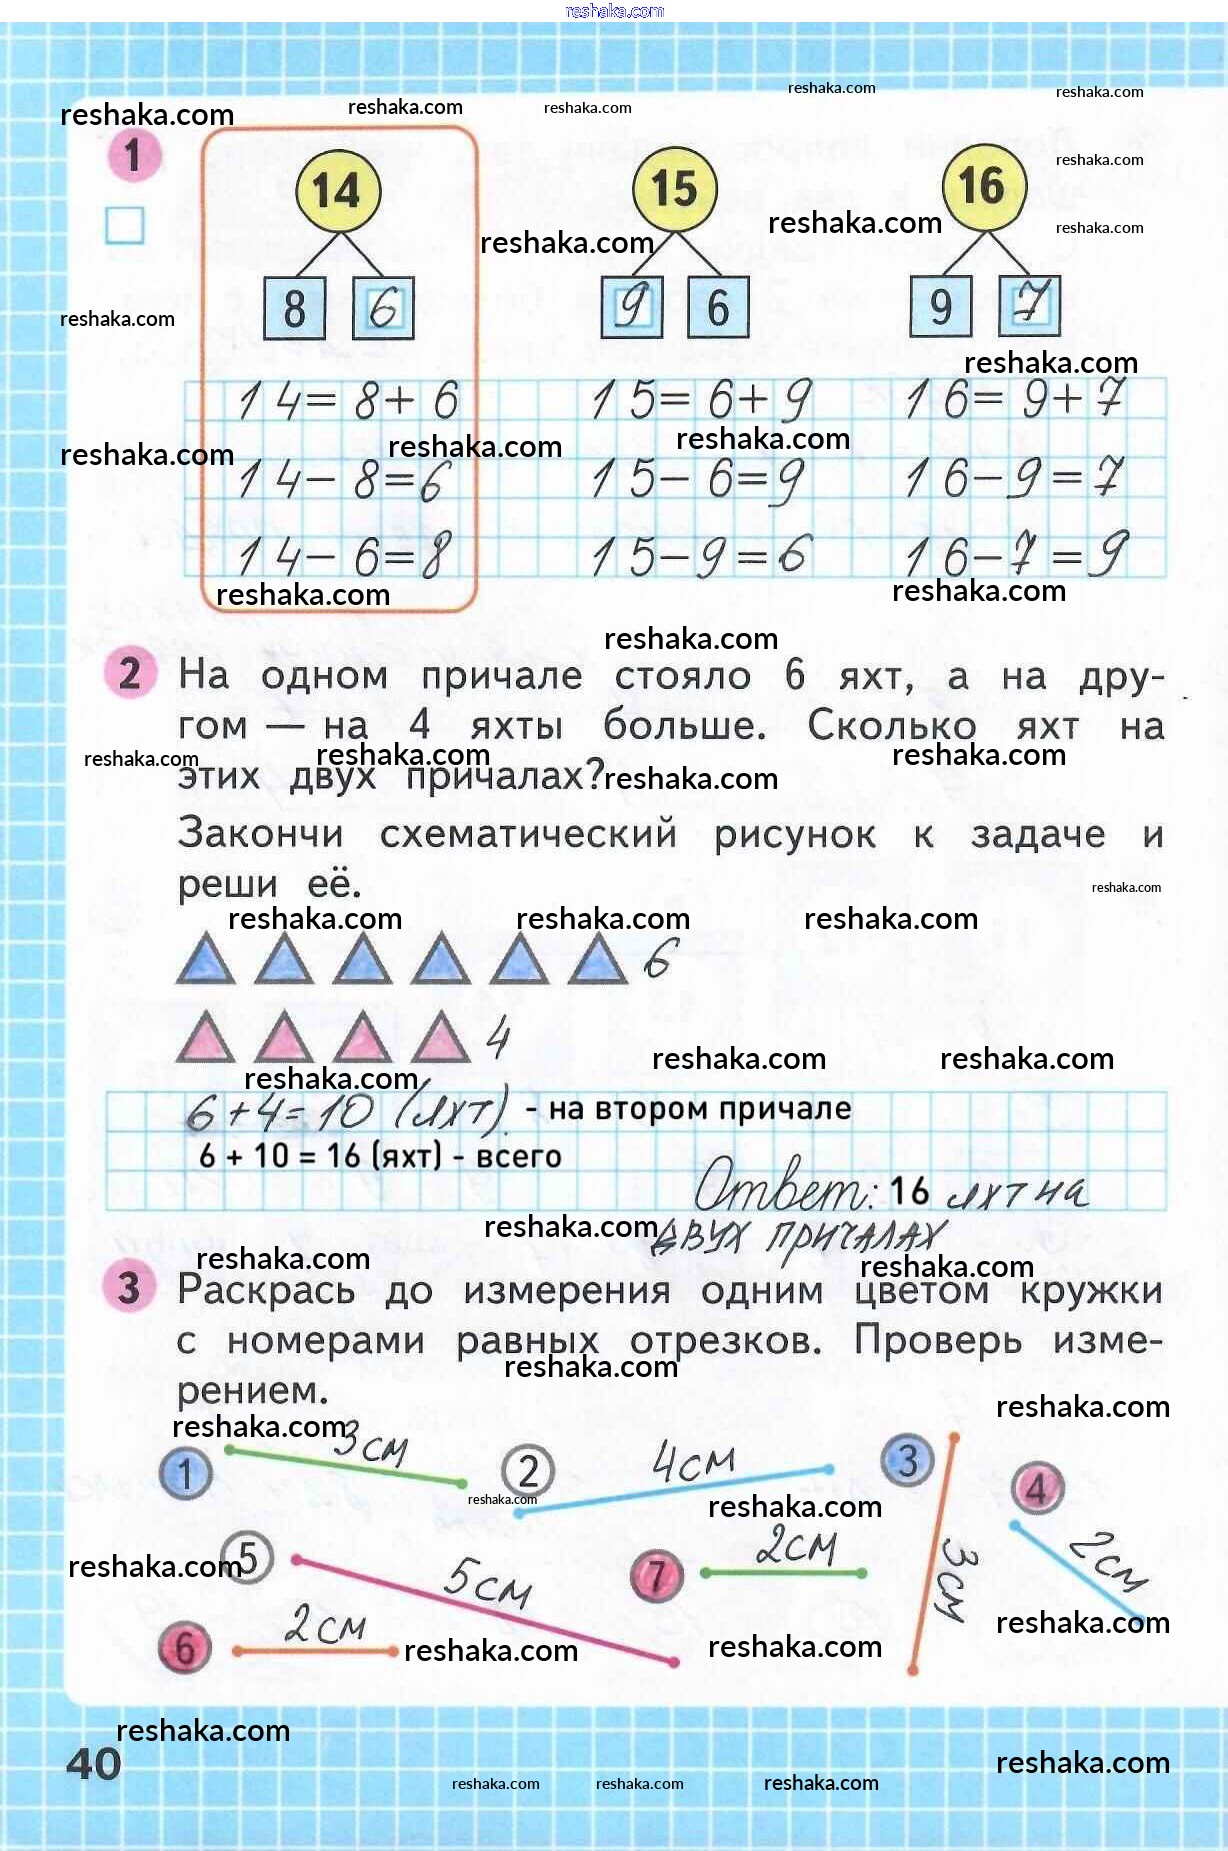 reshaka.com
reshaka.com reshaka.com
reshaka.com reshaka.com reshaka.com
1
14 15 16
reshaka.com
reshaka.com reshaka.com reshaka.com
8 6 9 6 9 7
reshaka.com
reshaka.com
14=8+6 15=6+9 16=9+7
reshaka.com reshaka.com reshaka.com
14-8=6 15-6=9 16-9=7
14-6=8 15-9=6 16-7=9
reshaka.com reshaka.com
reshaka.com
2 На одном причале стояло 6 яхт, а на дру-
гом — на 4 яхты больше. Сколько яхт на
reshaka.com reshaka.com reshaka.com
этих двух причалах?
reshaka.com
Закончи схематический рисунок к задаче и
реши её.
reshaka.com
reshaka.com reshaka.com reshaka.com
6
4
reshaka.com reshaka.com
reshaka.com
6+4=10 (яхт). - на втором причале
6 + 10 = 16 (яхт) - всего
Ответ: 16 яхт на
reshaka.com
двух причалах
reshaka.com reshaka.com
3 Раскрась до измерения одним цветом кружки
с номерами равных отрезков. Проверь изме-
reshaka.com
рением.
reshaka.com
reshaka.com
3см
1 2 4см 3 4
reshaka.com reshaka.com
5 5см 7 2см 3см 2см
reshaka.com
6 2см
reshaka.com reshaka.com reshaka.com
reshaka.com
40
reshaka.com
reshaka.com reshaka.com reshaka.com